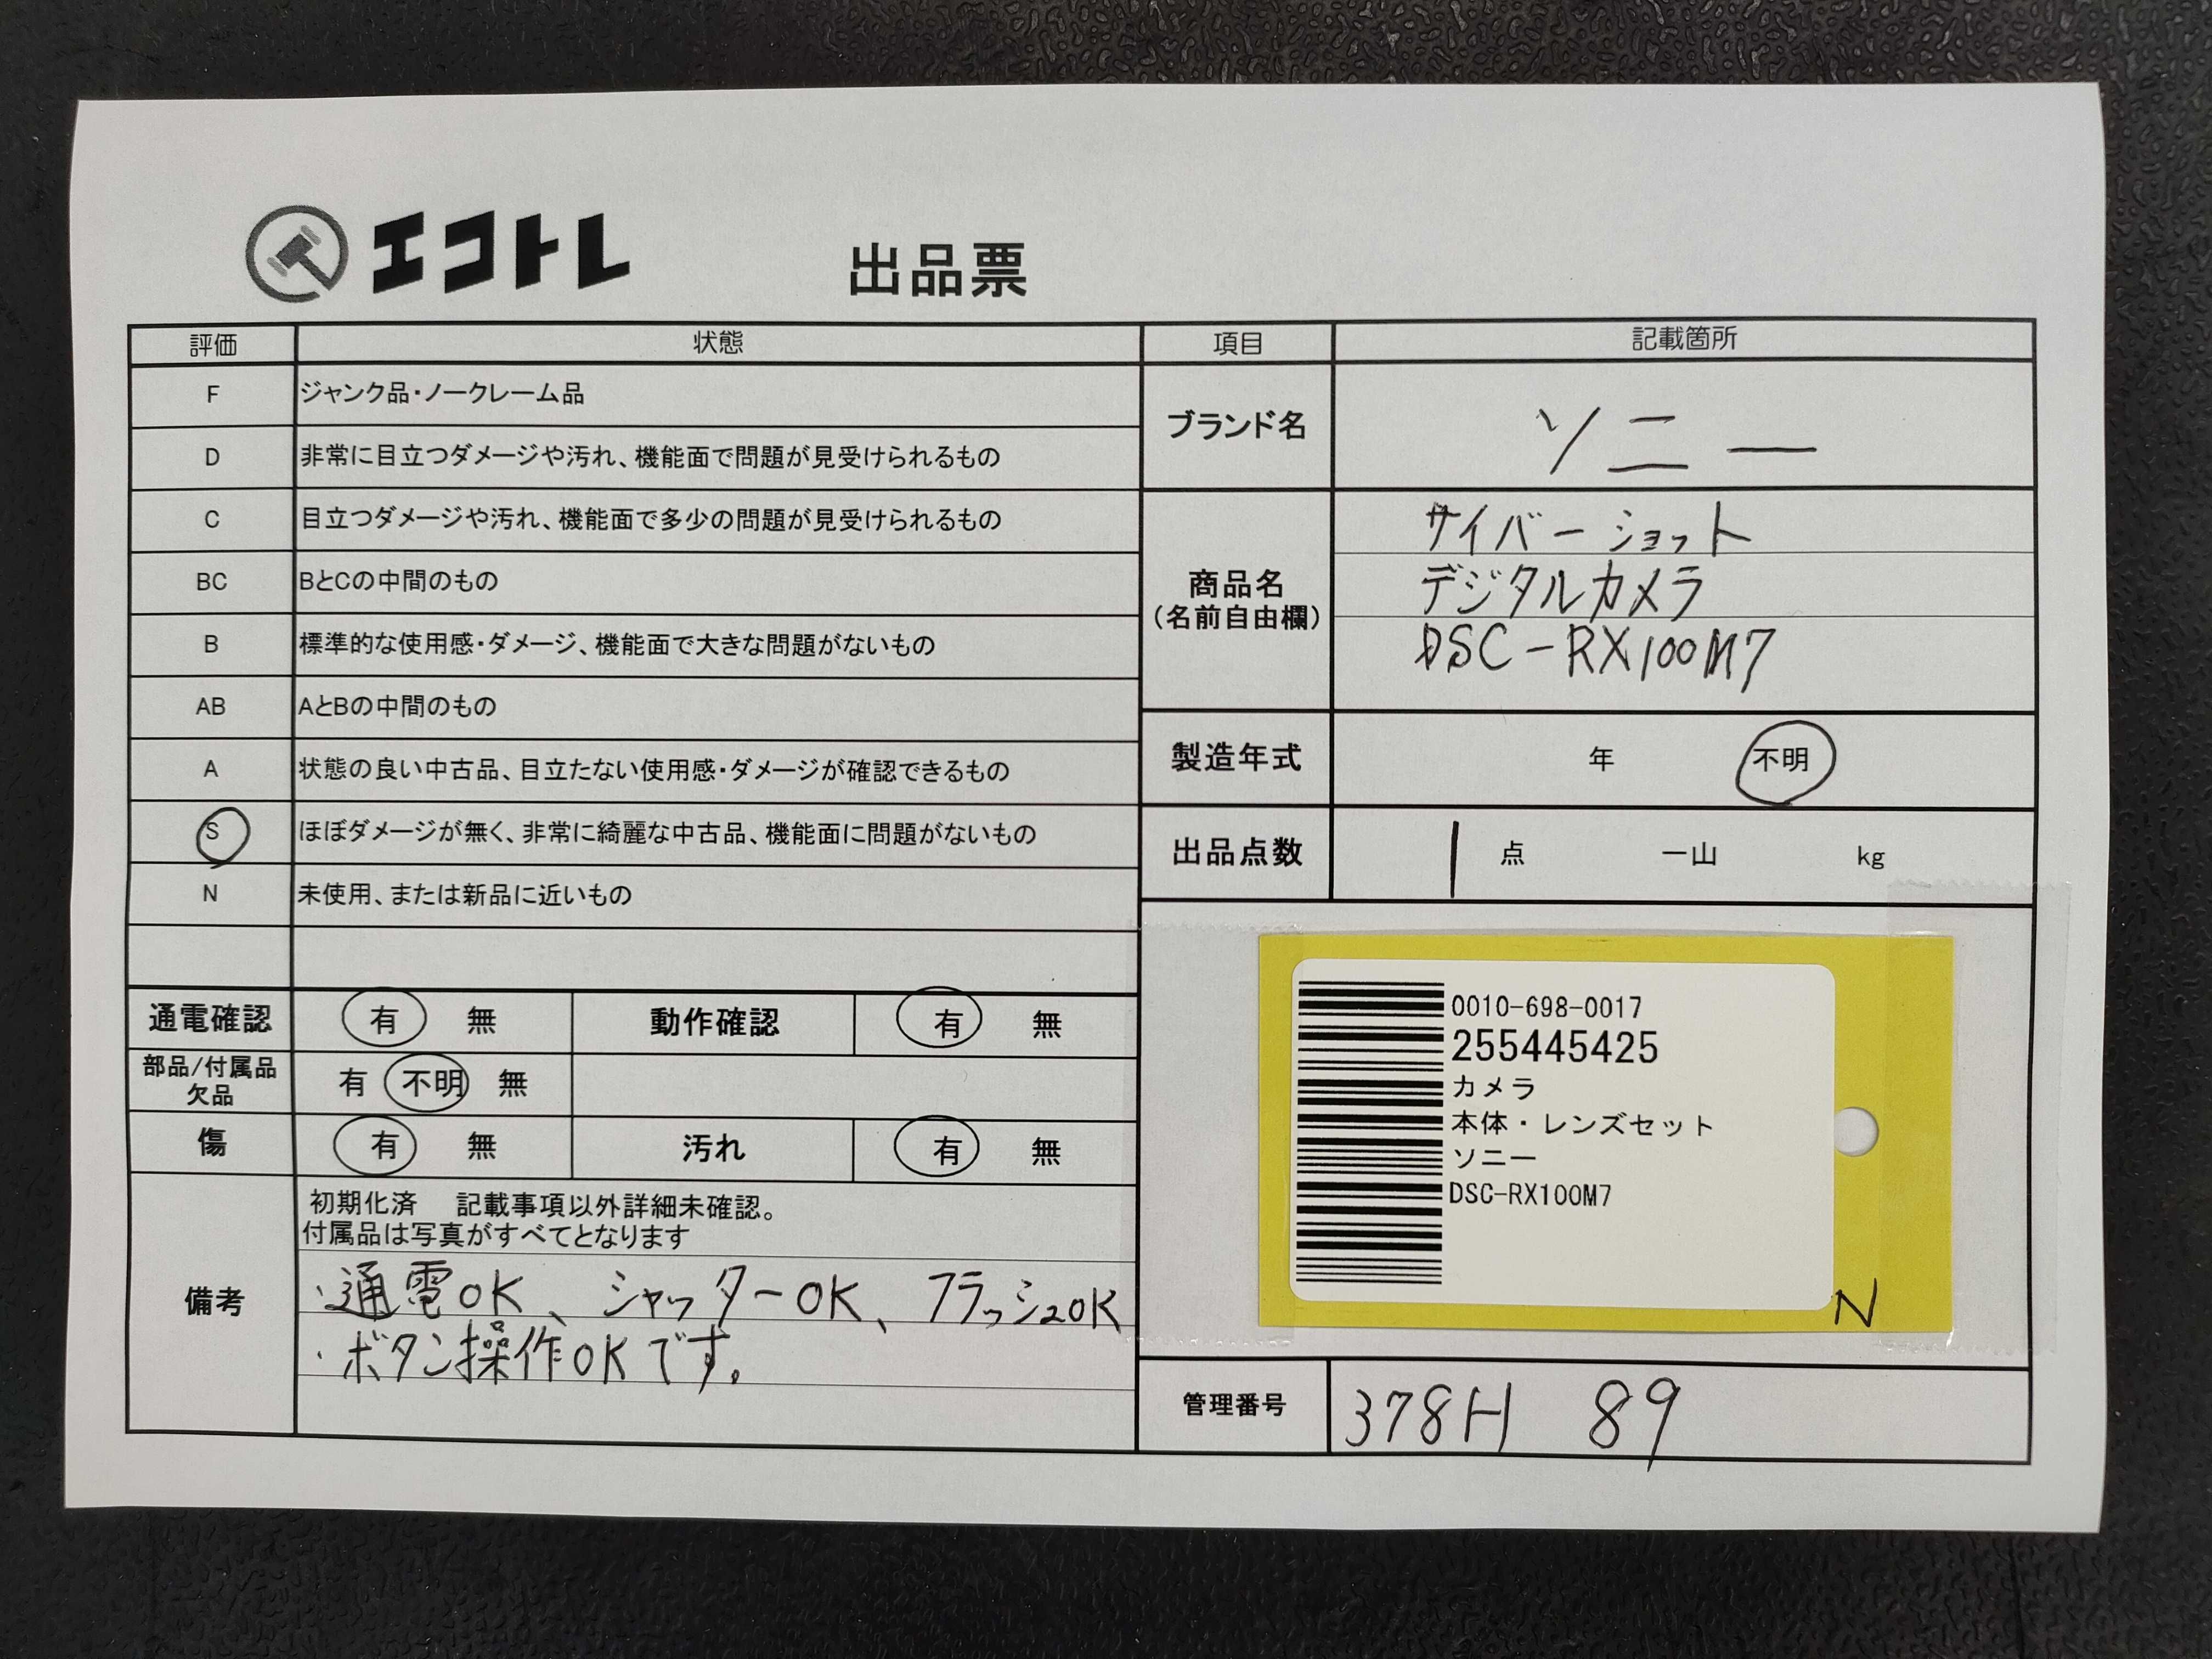 エコトレ
出品票
評価 状態
F ジャンク品・ノークレーム品
D 非常に目立つダメージや汚れ、機能面で問題が見受けられるもの
C 目立つダメージや汚れ、機能面で多少の問題が見受けられるもの
BC BとCの中間のもの
B 標準的な使用感・ダメージ、機能面で大きな問題がないもの
AB AとBの中間のもの
A 状態の良い中古品、目立たない使用感・ダメージが確認できるもの
S ほぼダメージが無く、非常に綺麗な中古品、機能面に問題がないもの
N 未使用、または新品に近いもの
通電確認 有 無 動作確認 有 無
部品/付属品
欠品
有 不明 無
傷 有 無 汚れ 有 無
備考
初期化済 記載事項以外詳細未確認。
付属品は写真がすべてとなります
・通電OK、シャッターOK、フラッシュOK
・ボタン操作OKです。
項目 記載箇所
ブランド名 ソニー
商品名
(名前自由欄)
サイバーショット
デジタルカメラ
DSC-RX100M7
製造年式 年 不明
出品点数 1 点 一山 kg
0010-698-0017
255445425
カメラ
本体・レンズセット
ソニー
DSC-RX100M7
N
管理番号 378H 89